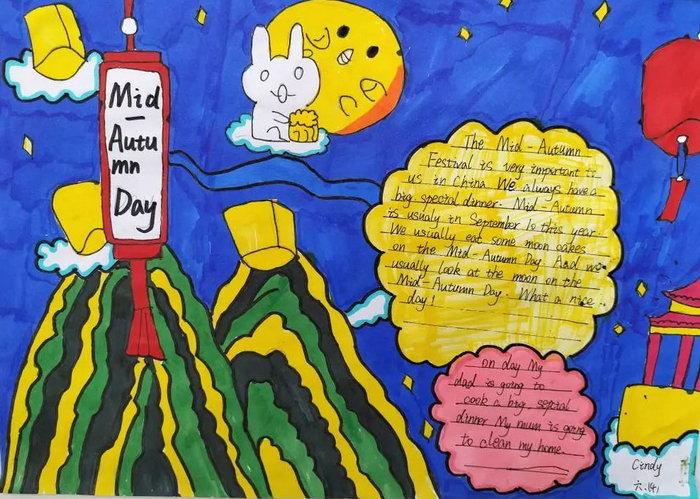 Mid
-
Autu
mn
Day
The Mid-Autumn
Festival is very important to
us in China. We always have a
big special dinner. Mid-Autumn
is usualy in September 10 this year.
We usually eat some moon cakes
on the Mid-Autumn Day. And we
usually look at the moon on the
Mid-Autumn Day. What a nice
day!
on day My
dad is going to
cook a big septial
dinner My mum is going
to clean my home.
Cindy
六.(4)